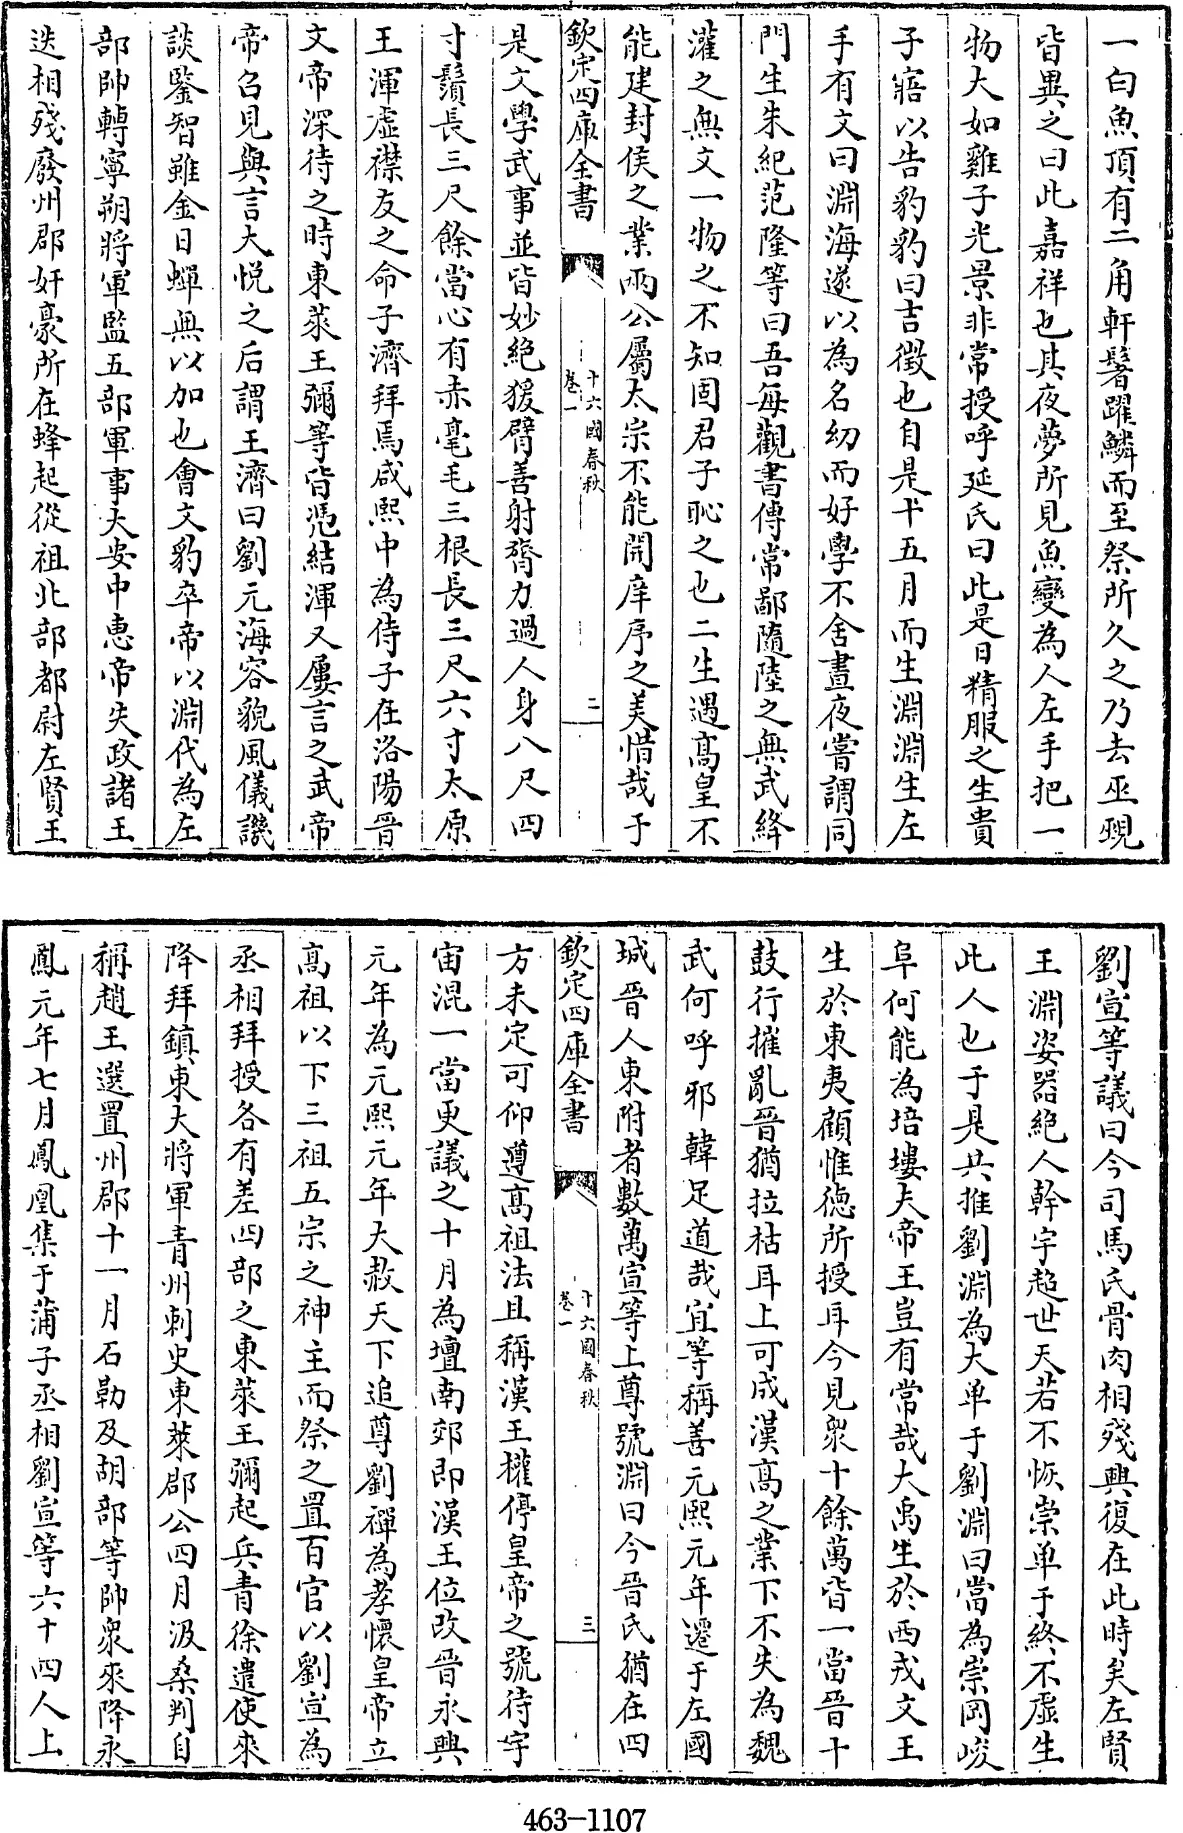 一白魚頂有二角軒髻躍鱗而至祭所久之乃去巫覡
皆異之曰此嘉祥也其夜夢所見魚變為人左手把一
物大如雞子光景非常授呼延氏曰此是日精服之生貴
子寤以告豹豹曰吉徵也自是十五月而生淵淵生左
手有文曰淵海遂以為名幼而好學不舍晝夜嘗謂同
門生朱紀范隆等曰吾每觀書傳常鄙隨陸之無武絳
灌之無文一物之不知固君子恥之也二生遇高皇不
能建封侯之業兩公屬太宗不能開庠序之美惜哉于
欽定四庫全書
十六國春秋
卷一
二
是文學武事並皆妙絶猨臂善射膂力過人身八尺四
寸鬚長三尺餘當心有赤毫毛三根長三尺六寸太原
王渾虛襟友之命子濟拜焉咸熙中為侍子在洛陽晋
文帝深待之時東萊王彌等皆憑結渾又屢言之武帝
帝召見與言大悅之后謂王濟曰劉元海容貌風儀譏
談鑒智雖金日蟬無以加也會文豹卒帝以淵代為左
部帥轉寧朔將軍監五部軍事大安中惠帝失政諸王
迭相殘廢州郡奸豪所在蜂起從祖北部都尉左賢王
劉宣等議曰今司馬氏骨肉相殘興復在此時矣左賢
王淵姿器絶人幹宇超世天若不恢崇单于終不虛生
此人也于是共推劉淵為大单于劉淵曰當為崇岡峻
阜何能為培塿夫帝王豈有常哉大禹生於西戎文王
生於東夷顧惟德所授耳今見衆十餘萬皆一當晉十
鼓行摧亂晉猶拉枯耳上可成漢高之業下不失為魏
武何呼邪韓足道哉宣等稱善元熙元年遷于左國
城晉人東附者數萬宣等上尊號淵曰今晉氏猶在四
欽定四庫全書
十六國春秋
卷一
三
方未定可仰遵高祖法且稱漢王權停皇帝之號待宇
宙混一當更議之十月為壇南郊即漢王位改晉永興
元年為元熙元年大赦天下追尊劉禪為孝懷皇帝立
高祖以下三祖五宗之神主而祭之置百官以劉宣為
丞相拜授各有差四部之東萊王彌起兵青徐遣使來
降拜鎮東大將軍青州刺史東萊郡公四月汲桑判自
稱趙王選置州郡十一月石勒及胡部等帥衆來降永
鳳元年七月鳳凰集于蒲子丞相劉宣等六十四人上
463-1107